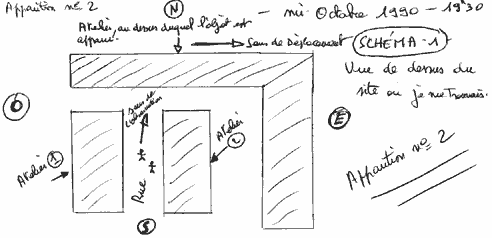 Apparition nº 2
N
— mi-Octobre 1990 — 19h30
Atelier, au dessus duquel l'objet est
apparu.
Sens de Déplacement
SCHÉMA-1
Vue de dessus du
site où je me trouvais.
O
Sens de
l'observation
Atelier 1
Rue
Atelier
2
E
Apparition nº 2
S